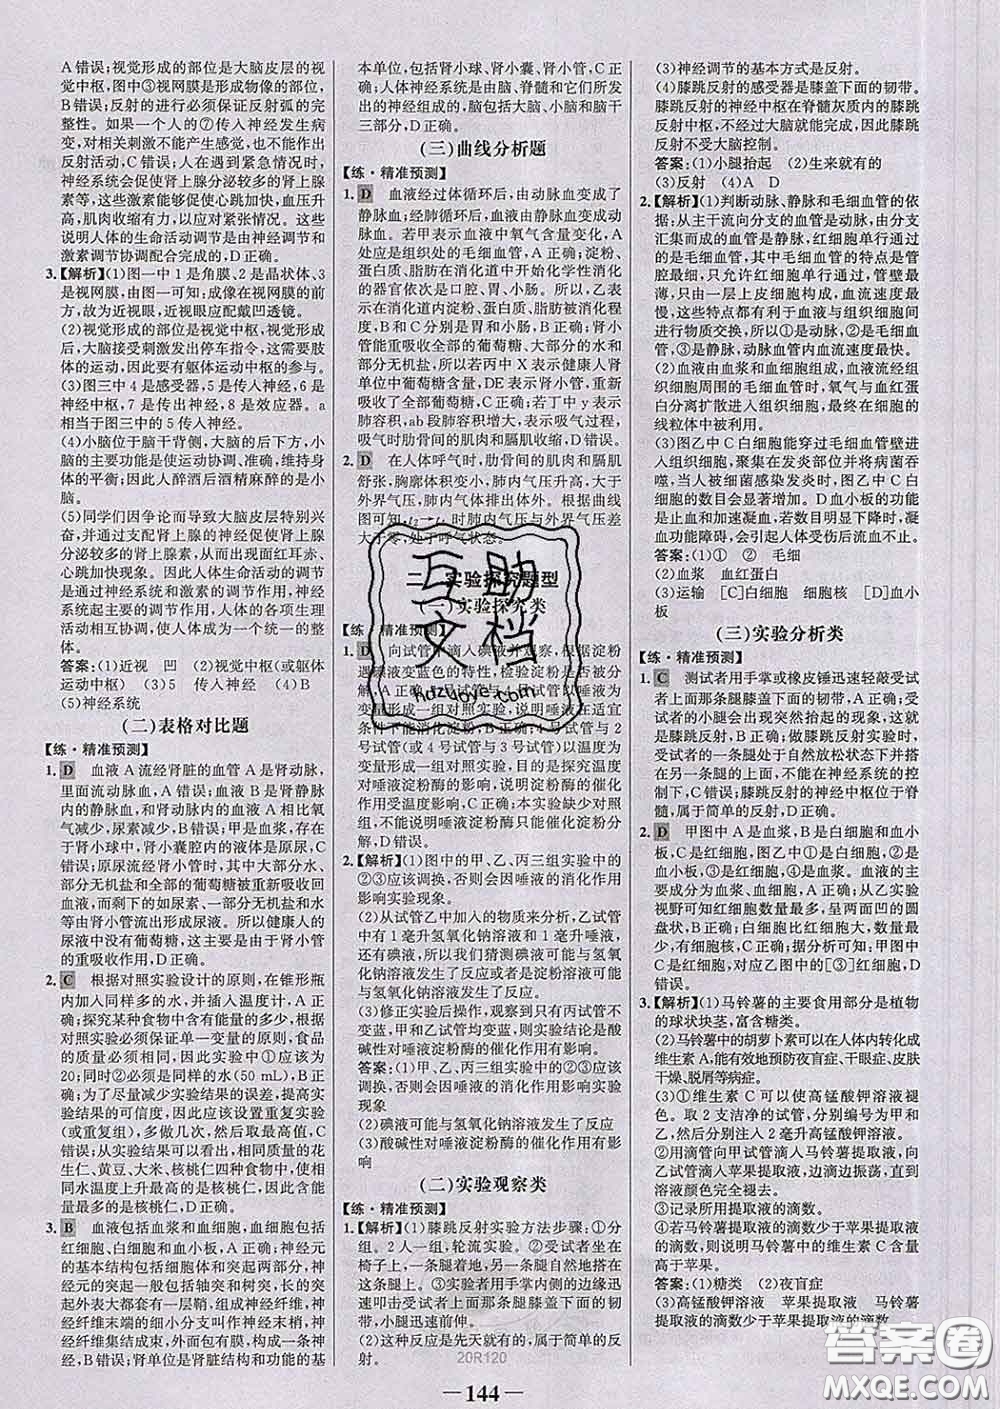 A错误;视觉形成的部位是大脑皮层的视
觉中枢,图中③视网膜是形成物像的部位,
B错误;反射的进行必须保证反射弧的完
整性。如果一个人的⑦传入神经发生病
变,对相关刺激不能产生感觉,也不能作出
反射活动,C错误;人在遇到紧急情况时,
神经系统会促使肾上腺分泌较多的肾上腺
素,这些激素能够促使心跳加快,血压升
高,肌肉收缩有力,以应对紧张情况。这些
说明人体的生命活动调节是由神经调节和
激素调节协调配合完成的,D正确。
3.【解析】(1)图一中1是角膜,2是晶状体,3
是视网膜,由图一可知:成像在视网膜的前
方,故为近视眼,近视眼应配戴凹透镜。
(2)视觉形成的部位是视觉中枢,视觉形成
后,大脑接受刺激发出停车指令,这需要肢
体的运动,因此要有躯体运动中枢的参与。
(3)图三中4是感受器,5是传入神经,6是
神经中枢,7是传出神经,8是效应器。a
相当于图三中的5传入神经。
(4)小脑位于脑干背侧,大脑的后下方,小
脑的主要功能是使运动协调、准确,维持身
体的平衡;因此人醉酒后酒精麻醉的是小
脑。
(5)同学们因争论而导致大脑皮层特别兴
奋,并通过支配肾上腺的神经促使肾上腺
分泌较多的肾上腺素,从而出现面红耳赤、
心跳加快现象。因此人体生命活动的调节
是通过神经系统和激素的调节作用,神经
系统起主要的调节作用,人体的各项生理
活动相互协调,使人体成为一个统一的整
体。
答案:(1)近视 凹 (2)视觉中枢(或躯体
运动中枢) (3)5 传入神经 (4)B
(5)神经系统
(二)表格对比题
【练·精准预测】
1. D 血液A流经肾脏的血管A是肾动脉,
里面流动脉血,A错误;血液B是肾静脉内
的静脉血,和肾动脉内的血液A相比氧
气减少,尿素减少,B错误;甲是血浆,存在
于肾小球中,肾小囊腔内的液体是原尿,C
错误;原尿流经肾小管时,其中大部分水、
部分无机盐和全部的葡萄糖被重新吸收回
血液,而剩下的如尿素、一部分无机盐和水
等由肾小管流出形成尿液。所以健康人的
尿液中没有葡萄糖,主要原因是由于肾小管
的重吸收作用,D正确。
2. C 根据对照实验设计的原则,在锥形瓶
内加入同样多的水,并插入温度计,A正
确;探究某种食物中含有能量的多少,根据
对照实验必须保证单一变量的原则,食物
的质量必须相同,因此实验中①应该为
20;同时②必须是同样的水(50 mL),B正
确;为了尽量减少实验结果的误差,提高实
验结果的可信度,因此应该设置重复实验
(或重复组),多做几次,然后取最高值,C
错误;从实验结果可以看出,相同质量的花
生仁、黄豆、大米、核桃仁四种食物中,使水
温上升最高的是核桃仁,因此这四种食物
含能量最多的是核桃仁,D正确。
3. B 血液包括血浆和血细胞,血细胞包括
红细胞、白细胞和血小板,A正确;神经元
的基本结构包括细胞体和突起两部分,神
经元的突起一般包括轴突和树突,长的突
起大都套有一层鞘,组成神经纤维,神经纤
维末端的细小分支叫作神经末梢,神
经纤维集结成束,外面包有膜,构成一条神
经,B错误;肾单位是肾脏结构和功能的基
本单位,包括肾小球、肾小囊、肾小管,C正
确;人体神经系统是由脑、脊髓和它们所发
出的神经组成的,脑包括大脑、小脑和脑干
三部分,D正确。
(三)曲线分析题
【练·精准预测】
1. D 血液经过体循环后,由动脉血变成了
静脉血;经肺循环后,血液由静脉血变成动
脉血。若甲表示血液中氧气含量变化,A
处应是肺部的毛细血管,A正确;淀粉、
蛋白质、脂肪在消化道中开始化学性消化
的器官依次是口腔、胃、小肠。所以,乙表
示在消化道内淀粉、蛋白质、脂肪被消化过
程,B和C分别是胃和小肠,B正确;肾小管
能重吸收全部的葡萄糖、大部分的水和
部分无机盐,所以若丙中X表示健康人肾
单位中葡萄糖含量,DE表示肾小管,重新
吸收了全部葡萄糖,C正确;若丁中y表示
肺容积,ab段肺容积增大,表示吸气过程,
吸气时肋骨间的肌肉和膈肌收缩,D错误。
2. D 在人体呼气时,肋骨间的肌肉和膈肌
舒张,胸廓体积变小,肺内气压升高,大于
外界气压,肺内气体排出体外。根据曲线
图可知,t₂→t₃时肺内气压与外界气压差
大于零,处于呼气状态。
二、实验探究题型
(一)实验探究类
【练·精准预测】
1. D 向试管中滴入碘液并观察,根据淀粉
遇碘液变蓝色的特性,检验淀粉是否被分
解,A正确;1号试管与2号试管以唾液为
变量形成一组对照实验,说明唾液在适宜
条件下能消化淀粉,B正确;4号试管与2
号试管(或4号试管与3号试管)以温度为
变量形成一组对照实验,目的是探究温度
对唾液淀粉酶的影响,说明唾液淀粉酶的
作用受温度影响,C正确;本实验缺少对照
实验,不能说明唾液淀粉酶只能催化淀粉分
解,D错误。
2.【解析】(1)图中的甲、乙、丙三组实验中的
②③应该调换,否则会因唾液的消化作用
影响实验现象。
(2)从试管乙中加入的物质来分析,乙试管
中有1毫升氢氧化钠溶液和1毫升唾液,
还有碘液,所以我们猜测碘液可能与氢氧
化钠溶液发生了反应或者是淀粉溶液可能
与氢氧化钠溶液发生了反应。
(3)修正实验后操作,观察到只有丙试管不
变蓝,甲和乙试管均变蓝,则实验结论是酸
碱性对唾液淀粉酶的催化作用有影响。
答案:(1)甲、乙、丙三组实验中的②③应该
调换,否则会因唾液的消化作用影响实验
现象
(2)碘液可能与氢氧化钠溶液发生反应
(3)酸碱性对唾液淀粉酶的催化作用有影
响
(二)实验观察类
【练·精准预测】
1.【解析】(1)膝跳反射实验方法步骤:①分
组。2人一组,轮流实验。②受试者坐在
椅子上,一条腿着地,另一条腿自然地搭在
这条腿上。③实验者用手掌内侧的边缘迅速
叩击受试者上面那条腿膝盖下面的韧带,
小腿迅速前伸。
(2)这种反应是先天就有的,属于简单的反
射。
(3)神经调节的基本方式是反射。
(4)膝跳反射的感受器是膝盖下面的韧带。
膝跳反射的神经中枢在脊髓灰质内的膝跳
反射中枢,无大脑也能完成,因此该膝跳
反射不受大脑控制。
答案:(1)小腿抬起 (2)生来就有的
(3)反射 (4)A D
2.【解析】(1)判断动脉、静脉和毛细血管的依
据:从主干流向分支的血管是动脉,由分支
汇集而成的血管是静脉,红细胞单行通过
的是毛细血管。其中毛细血管的特点是管
腔最细,只允许红细胞单行通过,管壁最
薄,只由一层上皮细胞构成,血流速度最
慢,这些特点都有利于血液与组织细胞间
进行物质交换,所以①是动脉,②是毛细血
管,③是静脉,动脉血管内血流速度最快。
(2)血液由血浆和血细胞组成,血液流经组
织细胞周围的毛细血管时,氧气与血红蛋
白分离扩散进入组织细胞,最终在细胞的
线粒体中被利用。
(3)图乙中C白细胞能穿过毛细血管壁进
入组织细胞,聚集在发炎部位并将病菌吞
噬,当人被细菌感染发炎时,此图中的C白
细胞的数目会显著增多。A血小板的功能
是止血和加速凝血。数目明显下降时,凝
血功能障碍,会引起人体受伤后流血不止。
答案:(1)① ② 毛细
(2)血浆 血红蛋白
(3)运输 [C]白细胞 细胞核 [A]血小
板
(三)实验分析类
【练·精准预测】
1. C 测试者用手掌或橡皮锤迅速轻敲受试
者上面那条腿膝盖下面的韧带,A正确;受
试者的小腿会出现突然抬起的现象,这就
是膝跳反射,B正确;做膝跳反射实验时,
受试者的一条腿处于自然放松状态下并搭
在另一条腿的上面,不能着地,如果着地会
影响实验效果,同时该反射不受大脑的控
制,C错误;膝跳反射的神经中枢位于脊
髓,属于简单的反射,D正确。
2. D 甲图中A是血浆,B是白细胞和血小
板,C是红细胞,图乙中①是血浆,②是血小
板,③是红细胞,④是白细胞。血液的主
要成分为血浆和血细胞,A错误;从乙实验
视野可见红细胞数量最多,呈两面凹的圆
盘状,B错误;白细胞比红细胞大,数量少,
C错误;据分析可知:甲图中[C]是红细胞,
对应乙图中的[③]红细胞,D
正确。
3.【解析】(1)马铃薯的主要食用部分是植物
的球状块茎,富含糖类。
(2)马铃薯中的胡萝卜素可以在人体内转化成
维生素A,能有效地预防夜盲症、干眼症、皮肤
干燥、脱屑等病症。
(3)①维生素C可以使高锰酸钾溶液褪
色。取2支洁净的试管,分别编号为甲和
乙,然后分别注入2毫升高锰酸钾溶液。
②用滴管向甲试管滴入马铃薯提取液,向
乙试管滴入苹果提取液,边滴边振荡,直到
溶液颜色完全褪去。
③记录所用提取液的滴数。
④若马铃薯提取液的滴数少于苹果提取液
的滴数,则说明马铃薯中的维生素C含量
高于苹果。
答案:(1)糖类 (2)夜盲症
(3)高锰酸钾溶液 苹果提取液 马铃薯
提取液的滴数少于苹果提取液的滴数
20R120
— 144 —
互助
文档
huzuoye.com
答案圈
MXQE.COM